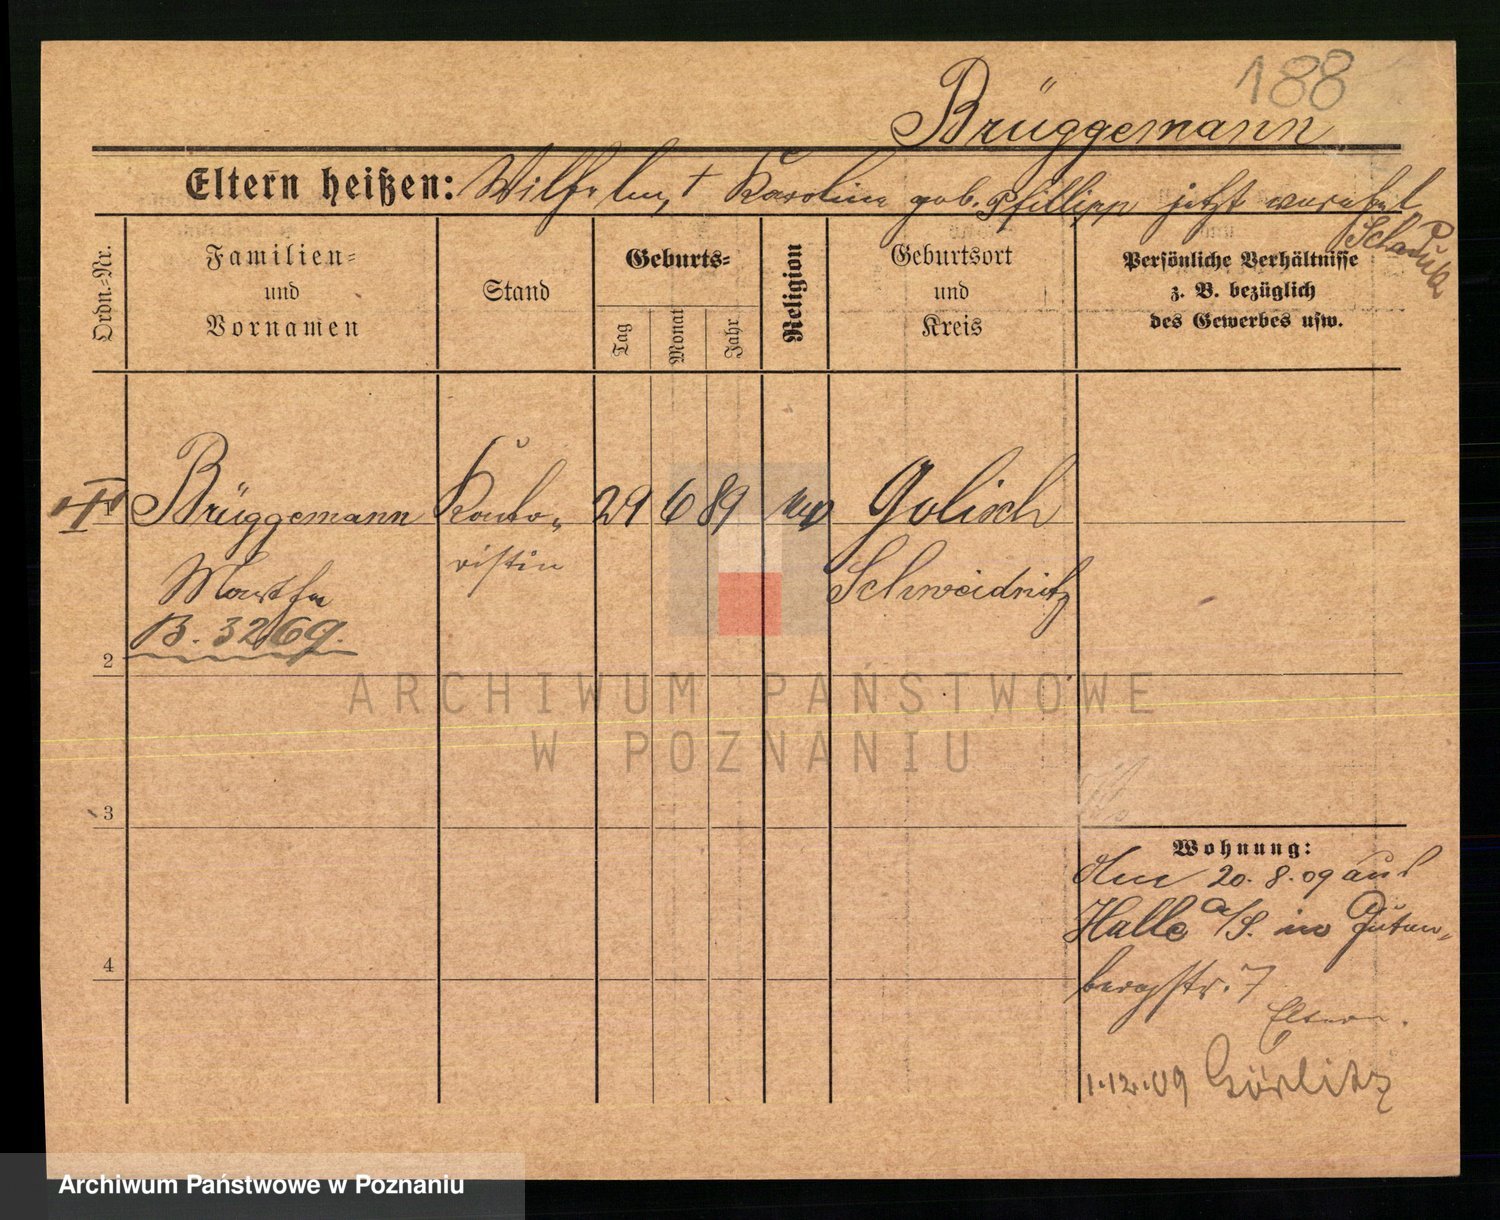 188
Brüggemann
Eltern heißen: Wilhelm, † Karoline geb. Phillipp jetzt verehel.
Ordn.-Nr.
Familien-
und
Vornamen
Stand
Geburts-
Tag
Monat
Jahr
Religion
Geburtsort
und
Kreis
Persönliche Verhältnisse
z. B. bezüglich
des Gewerbes usw.
Brüggemann Konto- 29 6 89 Golisch
ristin Schweidnitz
Martha
B. 3269.
2
3
4
Wohnung:
Am 20. 8. 09 aus
Halle a/S. in Guten-
bergstr. 7
Eltern.
1.12.09 Görlitz
ARCHIWUM PAŃSTWOWE
W POZNANIU
Archiwum Państwowe w Poznaniu